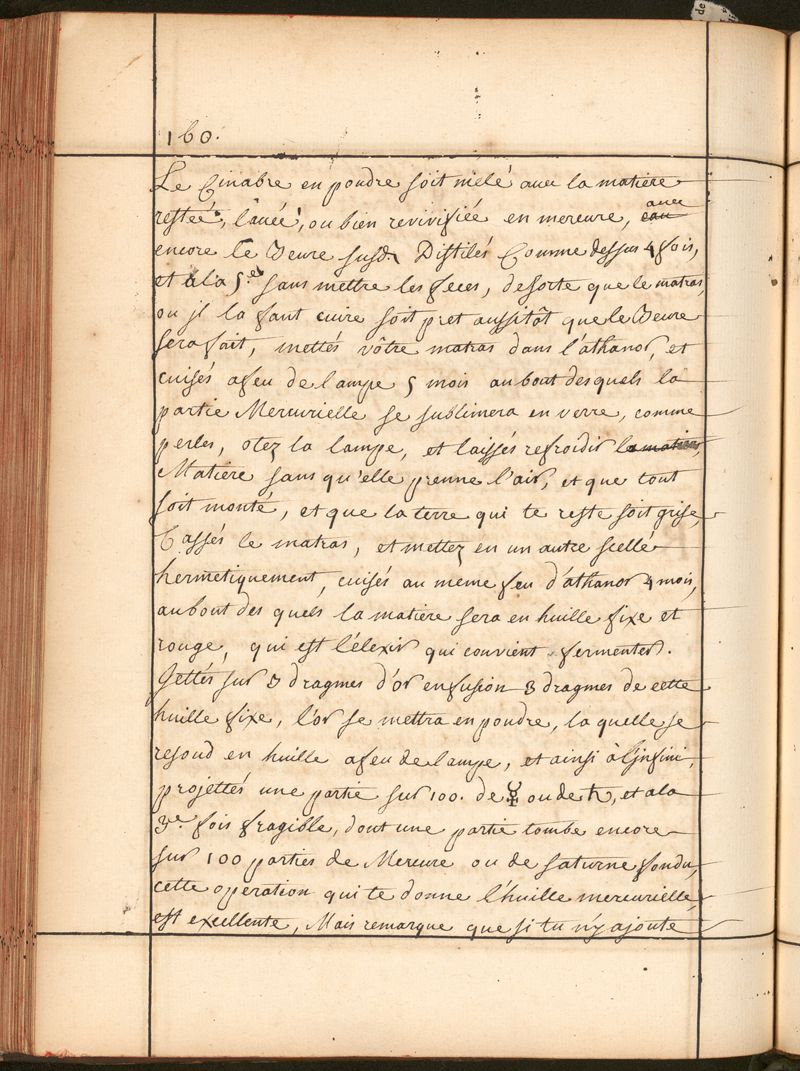 160.
Le Cinabre en poudre soit mélé avec la matiere
restée, lavée, ou bien revivifiée en mercure, avec
encore le Beure susd. Distilés Comme dessus 4 fois,
et a la 5.e sans mettre les feces, desorte que le matras,
ou jl la faut cuire soit pret aussitôt que le Beure
sera fait, mettés vôtre matras dans l'athanor, et
cuisés a feu de lampe 5 mois au bout desquels la
partie Mercurielle se sublimera en verre, comme
perles, otez la lampe, et laissés refroidir la matiere,
Matiere sans qu'elle prenne l'air, et que tout
soit monté, et que la terre qui te reste soit grise,
Cassés le matras, et mettez en un autre scellé
hermetiquement, cuisés au meme feu d'athanor 4 mois,
au bout des quels la matiere sera en huille fixe et
rouge, qui est l'élexir qui convient fermenter.
Gettés sur 3 dragmes d'or en fusion 3 dragmes de cette
huille fixe, l'or se mettra en poudre, la quelle se
resoud en huille a feu de lampe, et ainsi à l'jnfini,
projettés une partie sur 100. de ☿ ou de ♄, et a la
3.e fois fragible, dont une partie tombe encore
sur 100 parties de Mercure ou de saturne fondu,
cette operation qui te donne l'huille mercurielle,
est excellente, Mais remarque que si tu n'y ajoute